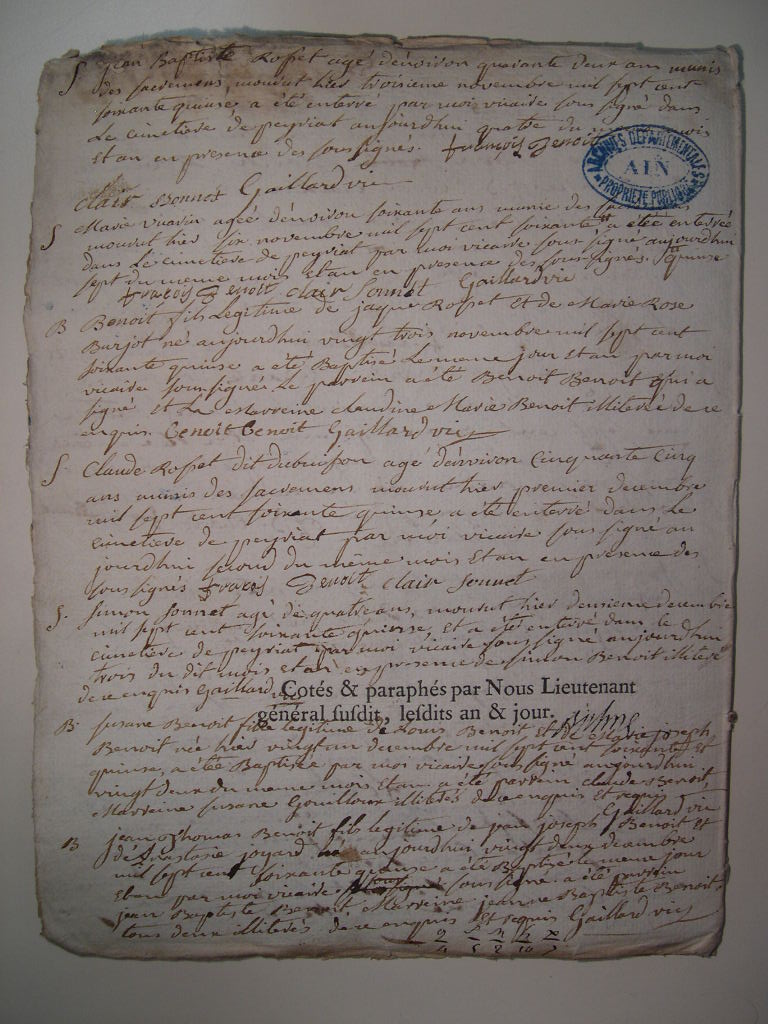 S jean Baptiste Rosset agé d'environ quarante deux ans munis
des sacremens, mourut hier troisieme novembre mil sept cent
soixante quinse a été enterré par moi vicaire sous signé dans
Le cimetiere de peyriat aujourdhui quatre du mois
et an en presence des sous signés. françois Benoit
clair Sonnet Gaillard vic
S Marie vuarin ageé d'environ soixante ans munie des
mourut hier six novembre mil sept cent soixante a étée enterrée
dans Le cimetiere de peyriat par moi vicaire sous signé aujourdhui
sept du meme mois et an en presence des sous signés. quinse
francois Benoit clair Sonnet Gaillard vic
B Benoit fils Legitime de jaque Rosset et de Marie Rose
Burjot né aujourdhui vingt trois novembre mil sept cent
soixante quinse a été Baptisé Le meme jour et an par moi
vicaire sous signé. Le parrein a été Benoit Benoit qui a
signé et La Marreine claudine Marie Benoit illiterée de ce
enquis. Benoit Benoit Gaillard vic
S. Claude Rosset dit dubuisson agé d'environ Cinquante Cinq
ans munis des sacremens mourut hier premier decembre
mil sept cent soixante quinse a été enterré dans Le
cimetiere de peyriat par moi vicaire sous signé au
jourdhui second du même mois et an en presence des
sous signés francois Benoit clair Sonnet
S. Simon Sonnet agé de quatre ans, mourut hier deusieme decembre
mil sept cent soixante quinse, et a été enterré dans le
cimetiere de peyriat par moi vicaire sous signé aujourdhui
trois du dit mois et an en presence de simon Benoit illiteré
de ce enquis Gaillard vic
Cotés & paraphés par Nous Lieutenant
général susdit, lesdits an & jour.
B. susane Benoit fille legitime de Louis Benoit et de Marie joseph
Benoit née hier vingt un decembre mil sept cent soixante et
quinse, a étée Baptisée par moi vicaire sous signé aujourdhui
vingt deux du meme mois et an. a été parrein claude Benoit,
Marreine susane Gouilloux illiterés de ce enquis et requis
Gaillard vic
B jean Thomas Benoit fils legitime de jean joseph Benoit et
de Anastasie joyard né aujourdhui vingt deux decembre
mil sept cent soixante quinse a été Baptisé le meme jour
et an par moi vicaire sous signé. a été parrein
jean Baptiste Benoit, Marreine jeanne Baptiste Benoit,
tous deux illiterés de ce enquis et requis Gaillard vic
ARCHIVES DÉPARTEMENTALES
AIN
PROPRIÉTÉ PUBLIQUE